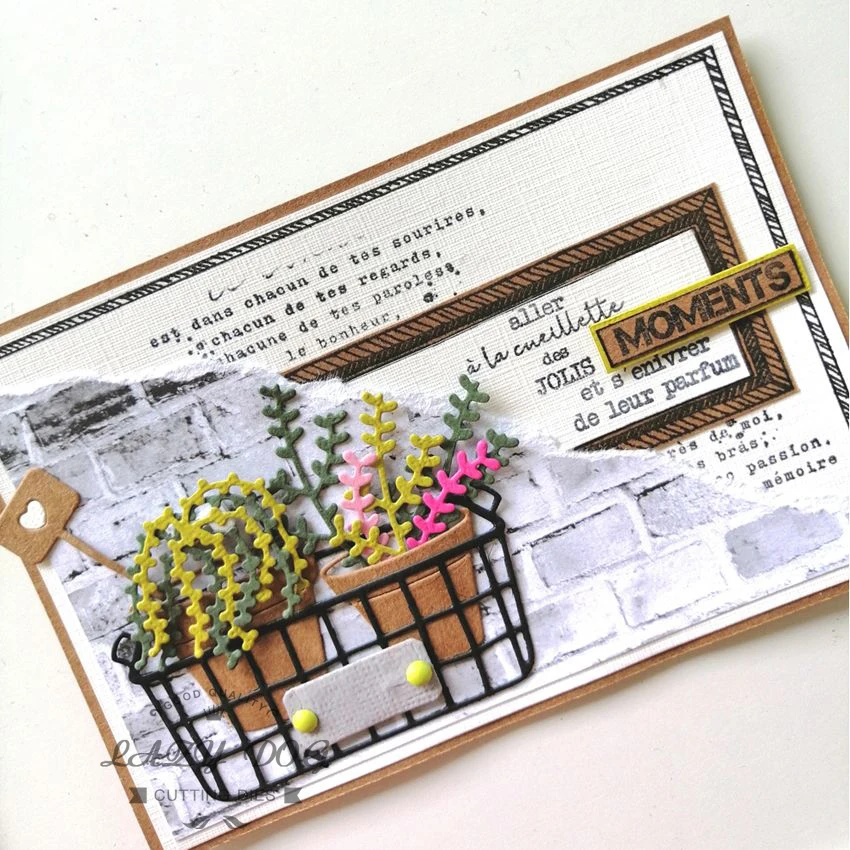 est dans chacun de tes sourires,
chacun de tes regards,
chacune de tes paroles
le bonheur,
aller
à la cueillette
des
JOLIS MOMENTS
et s'enivrer
de leur parfum
de moi,
bras,
passion.
mémoire
GOOD QUALITY
LAZY DOG
CUTTING DIES